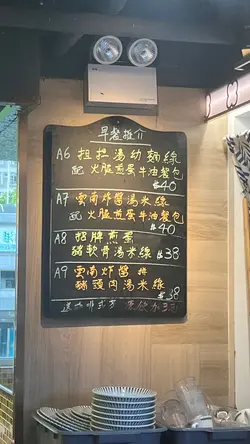 早餐推介
A6 担担湯幼麵線
配 火腿煎蛋牛油餐包
$40
A7 雲南炸醬湯米線
配 火腿煎蛋牛油餐包
$40
A8 招牌煎蛋
豬軟骨湯米線 $38
A9 雲南炸醬拼
豬頸肉湯米線
$38